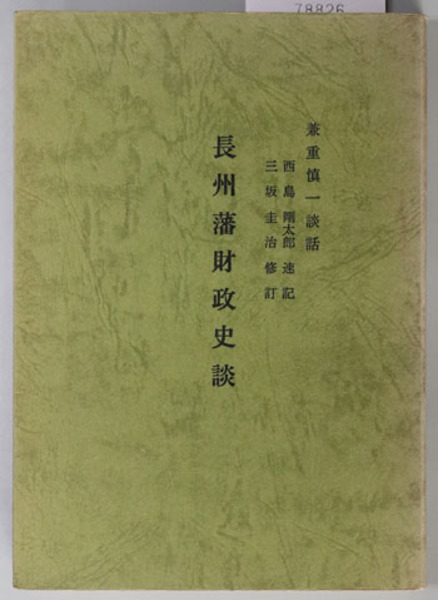 78826
兼重慎一談話
西島剛太郎速記
三坂圭治修訂
長州藩財政史談